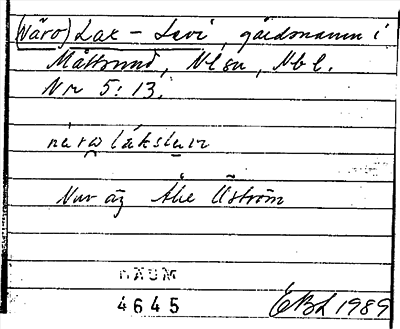 (Näro) Lax-Levi, gårdsmann i
Måttsund, Nlsu, Nbl.
Nr 5:13.
närω lákslevı
Nuv äg Åke Öström
DAUM
4645
EBL 1989